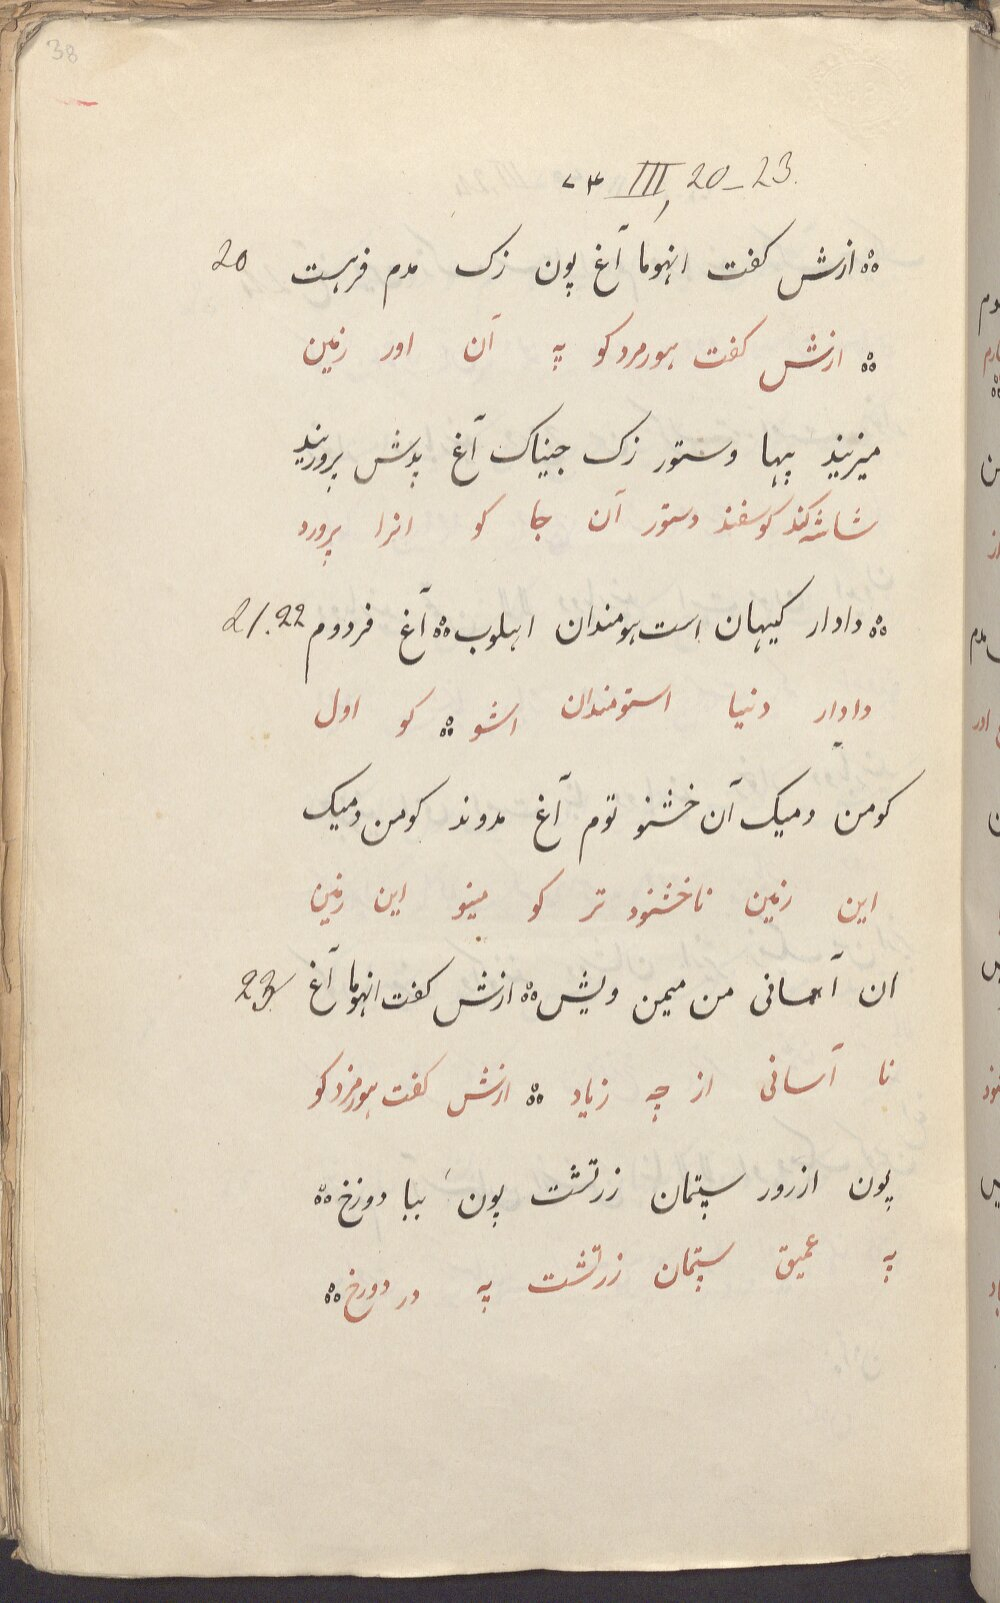 38
۷۴ III, 20-23.
ازش گفت انهوما آغ پون زک مدم فرهست 20
ازش گفت هورمزد کو په آن اور زمین
میزیند پیها وستور زک جیناک آغ پدش پرورنید
شاشه کند کوسفند دستور آن جا کو انرا پرورد
دادار گیهان است هومندان اهلوب آغ فردوم 21.22
دادار دنیا استومندان اشو کو اول
کومن دمیک آن خشنو توم آغ مدوند کومن دمیک
این زمین ناخشنود تر کو مینو این زمین
ان آسانی من میمن ویش ازش گفت انهوما آغ 23
نا آسانی از چه زیاد ازش گفت هورمزد کو
پون ازرور سپتمان زرتشت پون ببا دوزخ
په عمیق سپتمان زرتشت په در دوزخ